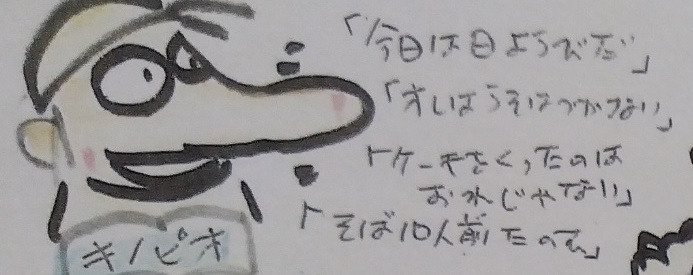 「今日は日ようびだ」
「オレはうそはつかない」
「ケーキをくったのは
おれじゃない」
「そば10人前たのむ」
キノピオ